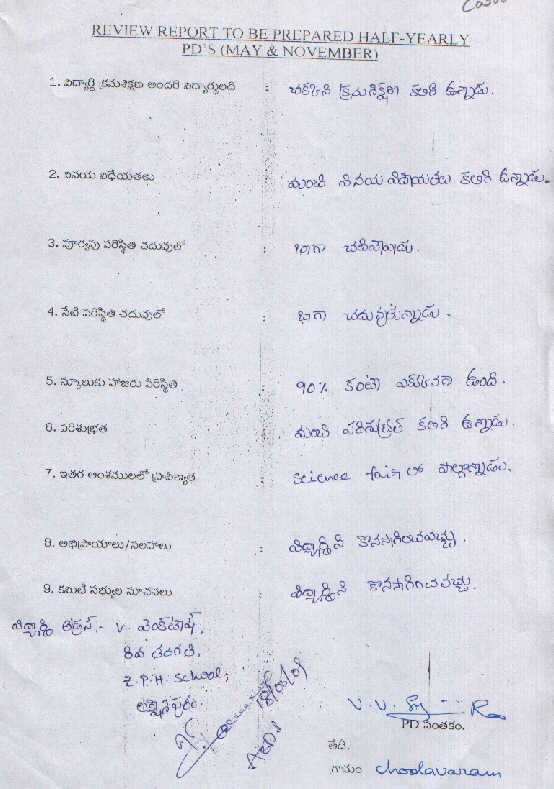 REVIEW REPORT TO BE PREPARED HALF-YEARLY
PD'S (MAY & NOVEMBER)
1. విద్యార్థి క్రమశిక్షణ అందరి విద్యార్థులది : క్రమశిక్షణ కలిగి ఉన్నాడు.
2. వినయ విధేయతలు : మంచి వినయ విధేయతలు కలిగి ఉన్నాడు.
3. పూర్వపు పరిస్థితి చదువులో : బాగా చదివేవాడు.
4. నేటి పరిస్థితి చదువులో : బాగా చదువుతున్నాడు.
5. స్కూలుకు హాజరు పరిస్థితి : 90% కంటే ఎక్కువగా ఉంది.
6. పరిశుభ్రత : మంచి పరిశుభ్రత కలిగి ఉన్నాడు.
7. ఇతర అంశములలో ప్రావీణ్యత : science fair లో పాల్గొన్నాడు.
8. అభిప్రాయాలు/సలహాలు : విద్యార్థిని కొనసాగించవచ్చు.
9. కమిటీ సభ్యుల సూచనలు : విద్యార్థిని కొనసాగించవచ్చు.
విద్యార్థి అడ్రస్ :- V. వెంకటేష్,
8వ తరగతి,
Z.P.H. School,
లక్ష్మీపురం.
PD సంతకం.
తేది.
గ్రామం choolavaram